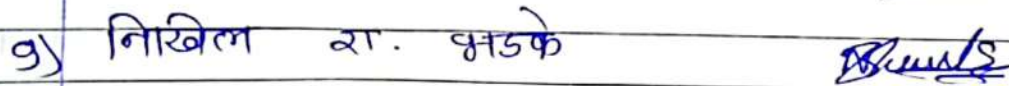 9) निखिल रा. भडके